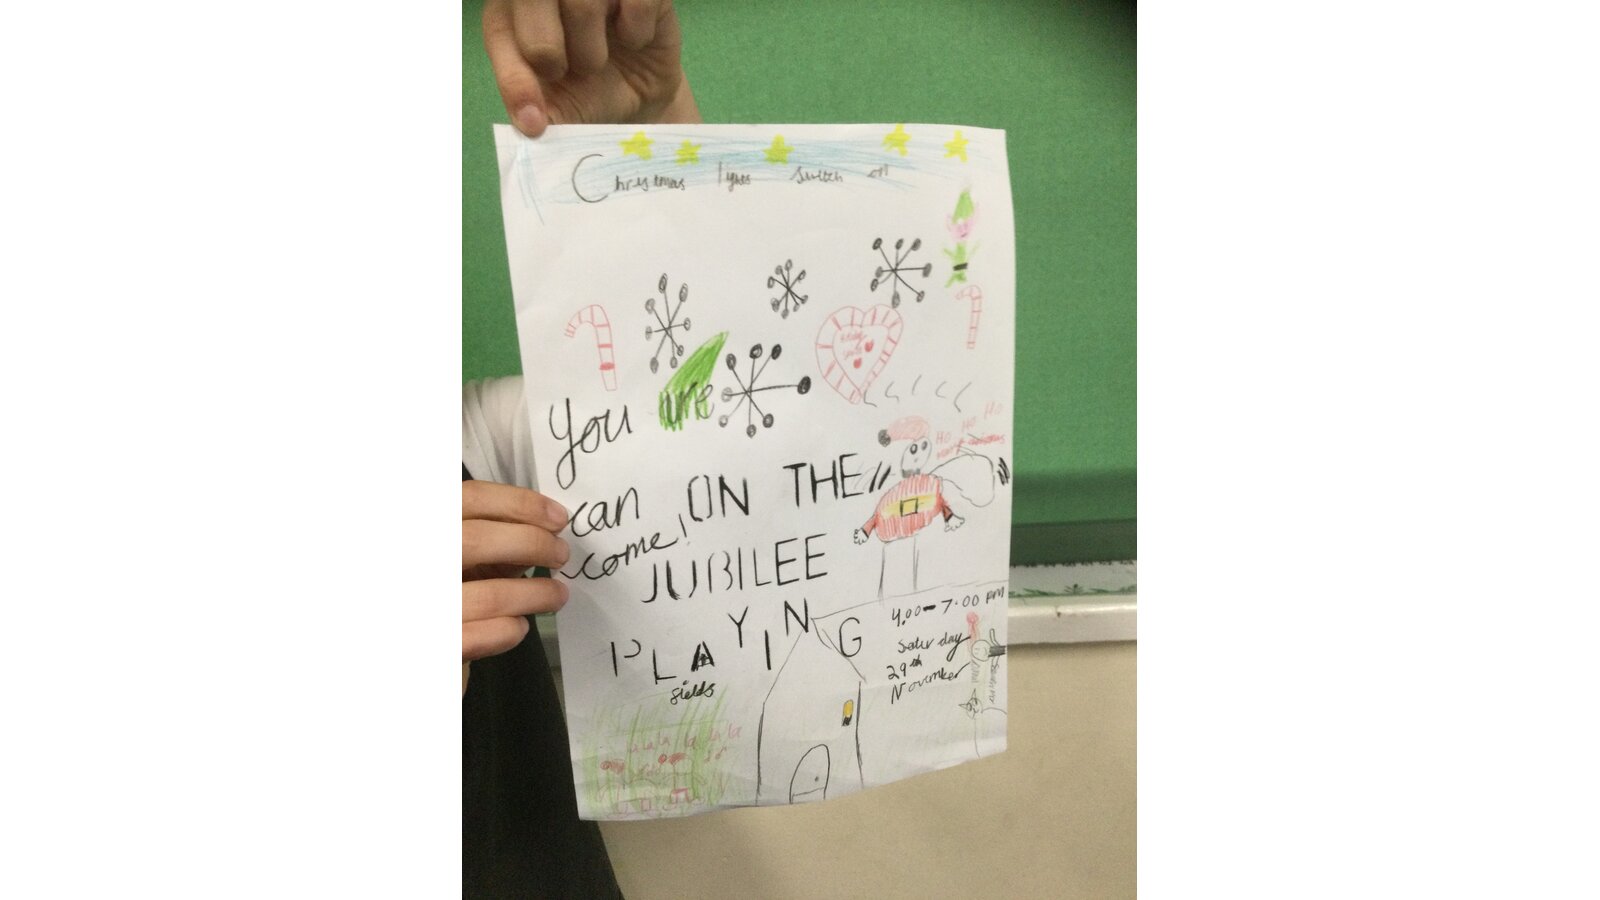 Christmas lights switch on
You are
can ON THE
come!
JUBILEE
PLAYING
fields
Ho Ho Ho
merry christmas
4.00-7.00 pm
Saturday
29th
November
la la la la la la